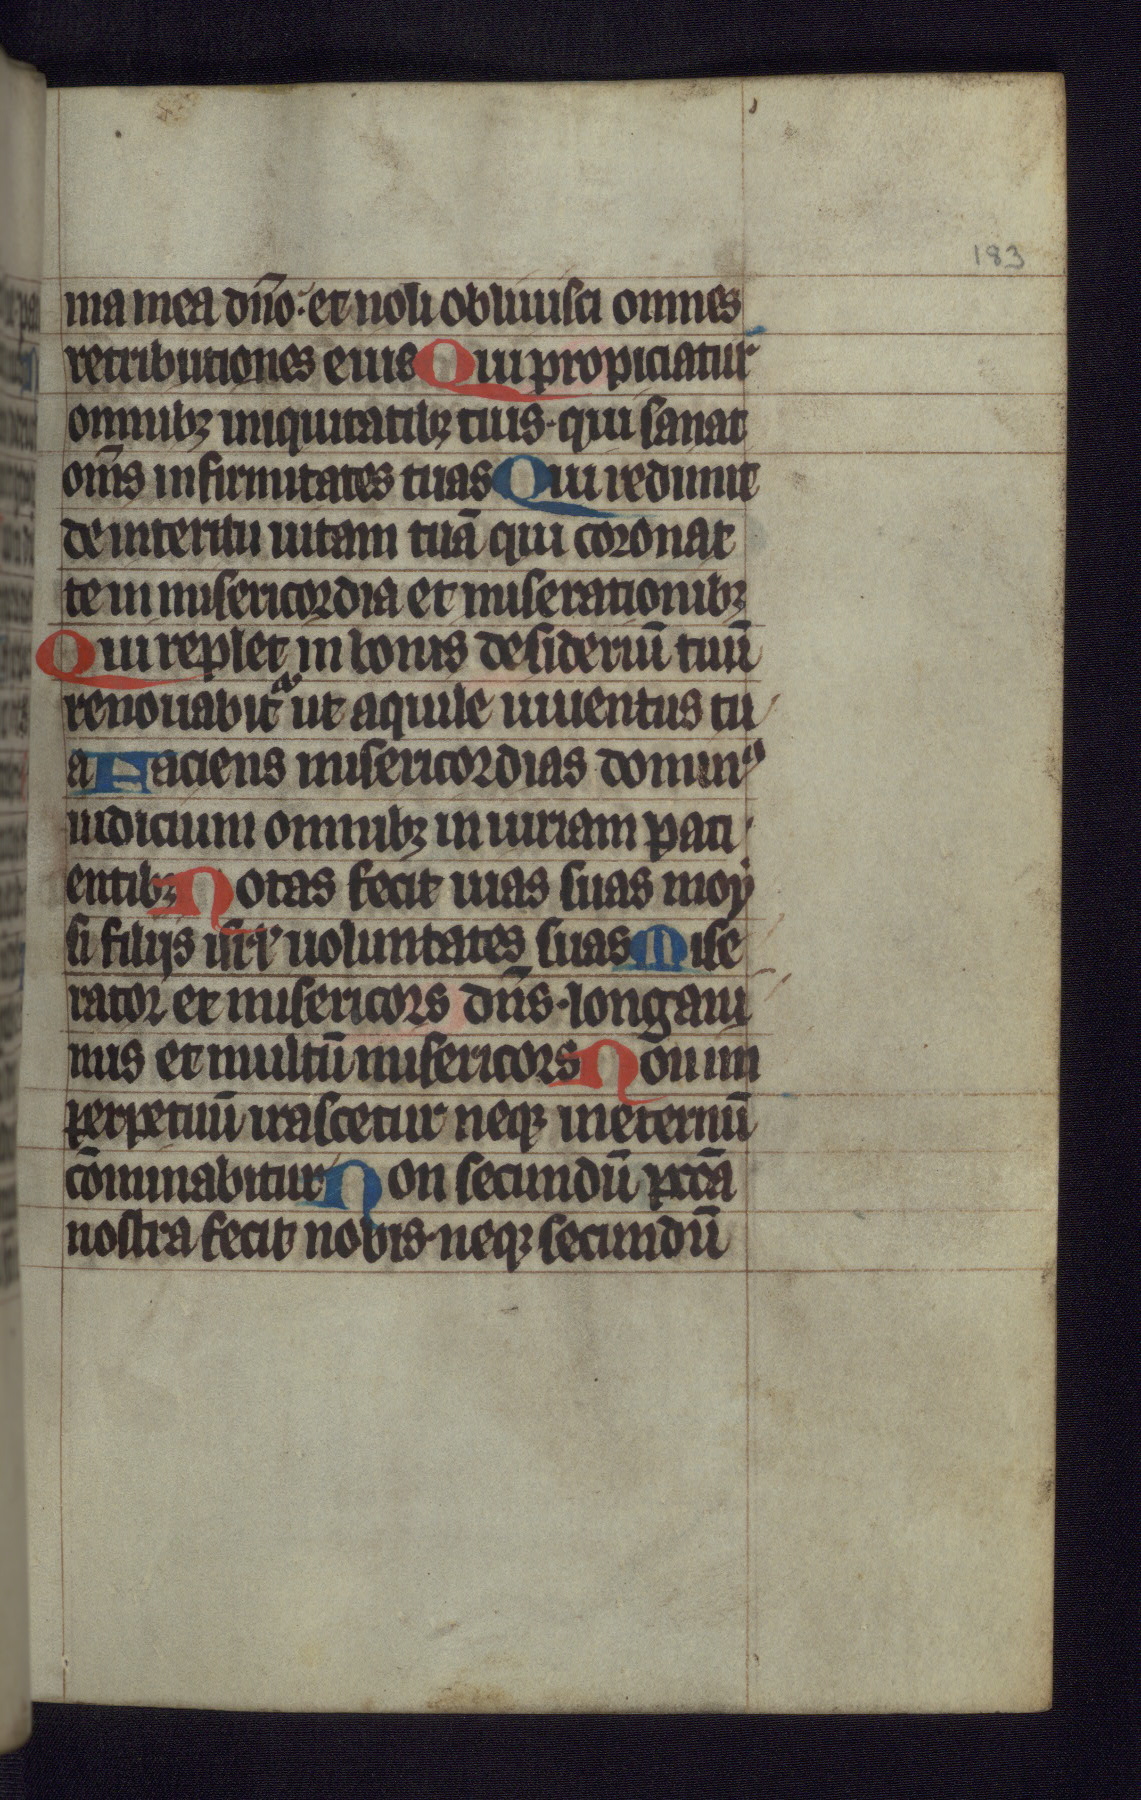 183
ma mea dño· et noli obliuisci omnes
retributiones eius Qui propiciatur
omnibꝫ iniquitatibꝫ tuis· qui sanat
om̄s infirmitates tuas Qui redimit
de interitu uitam tuā qui coronat
te in misericordia et miserationibꝫ
Qui replet in bonis desideriū tuū
renouabit᷑ ut aquile iuuentus tu
a Faciens misericordias dominꝰ
iudicium omnibꝫ iniuriam pati
entibꝫ Notas fecit uias suas moy
si filijs isr̄l uoluntates suas Mise
rator et misericors dn̄s· longani
mis et multū misericors Non im
perpetuū irascetur neqꝫ in eternū
cōminabitur Non secundū pccā
nostra fecit nobis· neqꝫ secundū